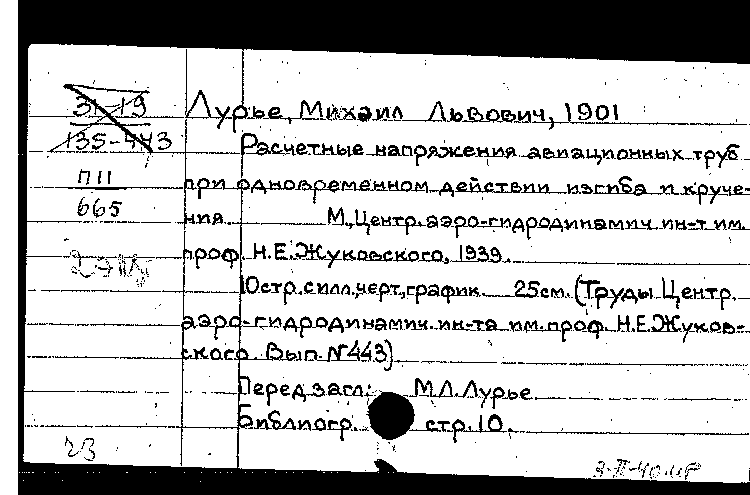 31-19
135-443
П11
665
Лурье, Михаил Львович, 1901
Расчетные напряжения авиационных труб
при одновременном действии изгиба и круче-
ния. М., Центр. аэро-гидродинамич. ин-т им.
проф. Н.Е.Жуковского, 1939.
10 стр. с илл., черт., график. 25 см. (Труды Центр.
аэро-гидродинамич. ин-та им. проф. Н.Е.Жуков-
ского. Вып. №443)
Перед загл.: М.Л.Лурье.
Библиогр. стр. 10.
23